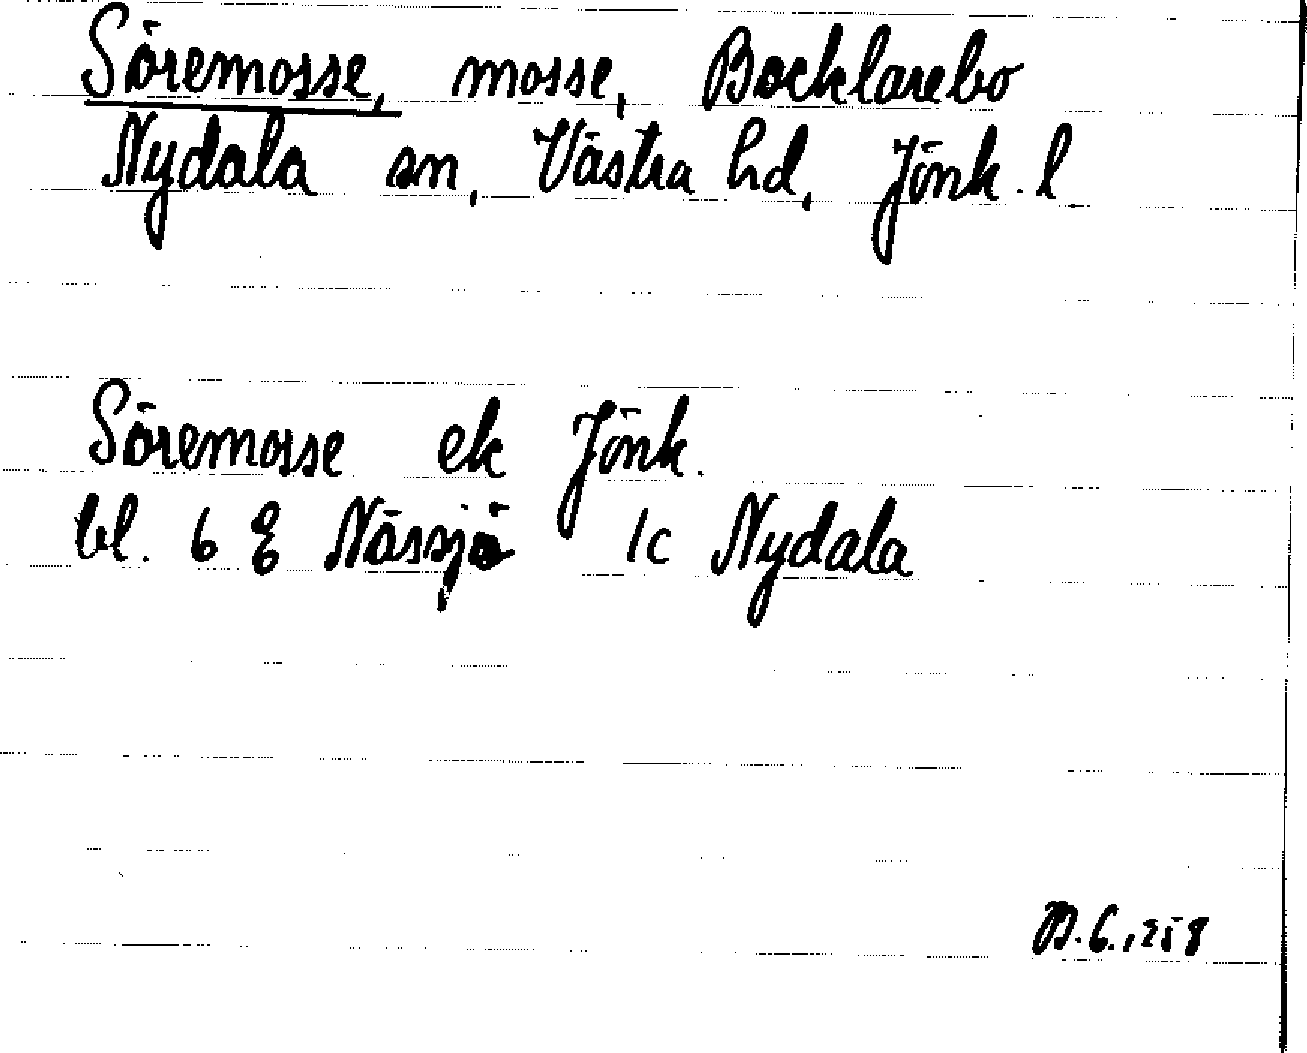 Söremosse, mosse, Bocklarebo
Nydala sn, Västra hd, Jönk. l
Söremosse ek Jönk.
bl. 6 E Nässjö 1c Nydala